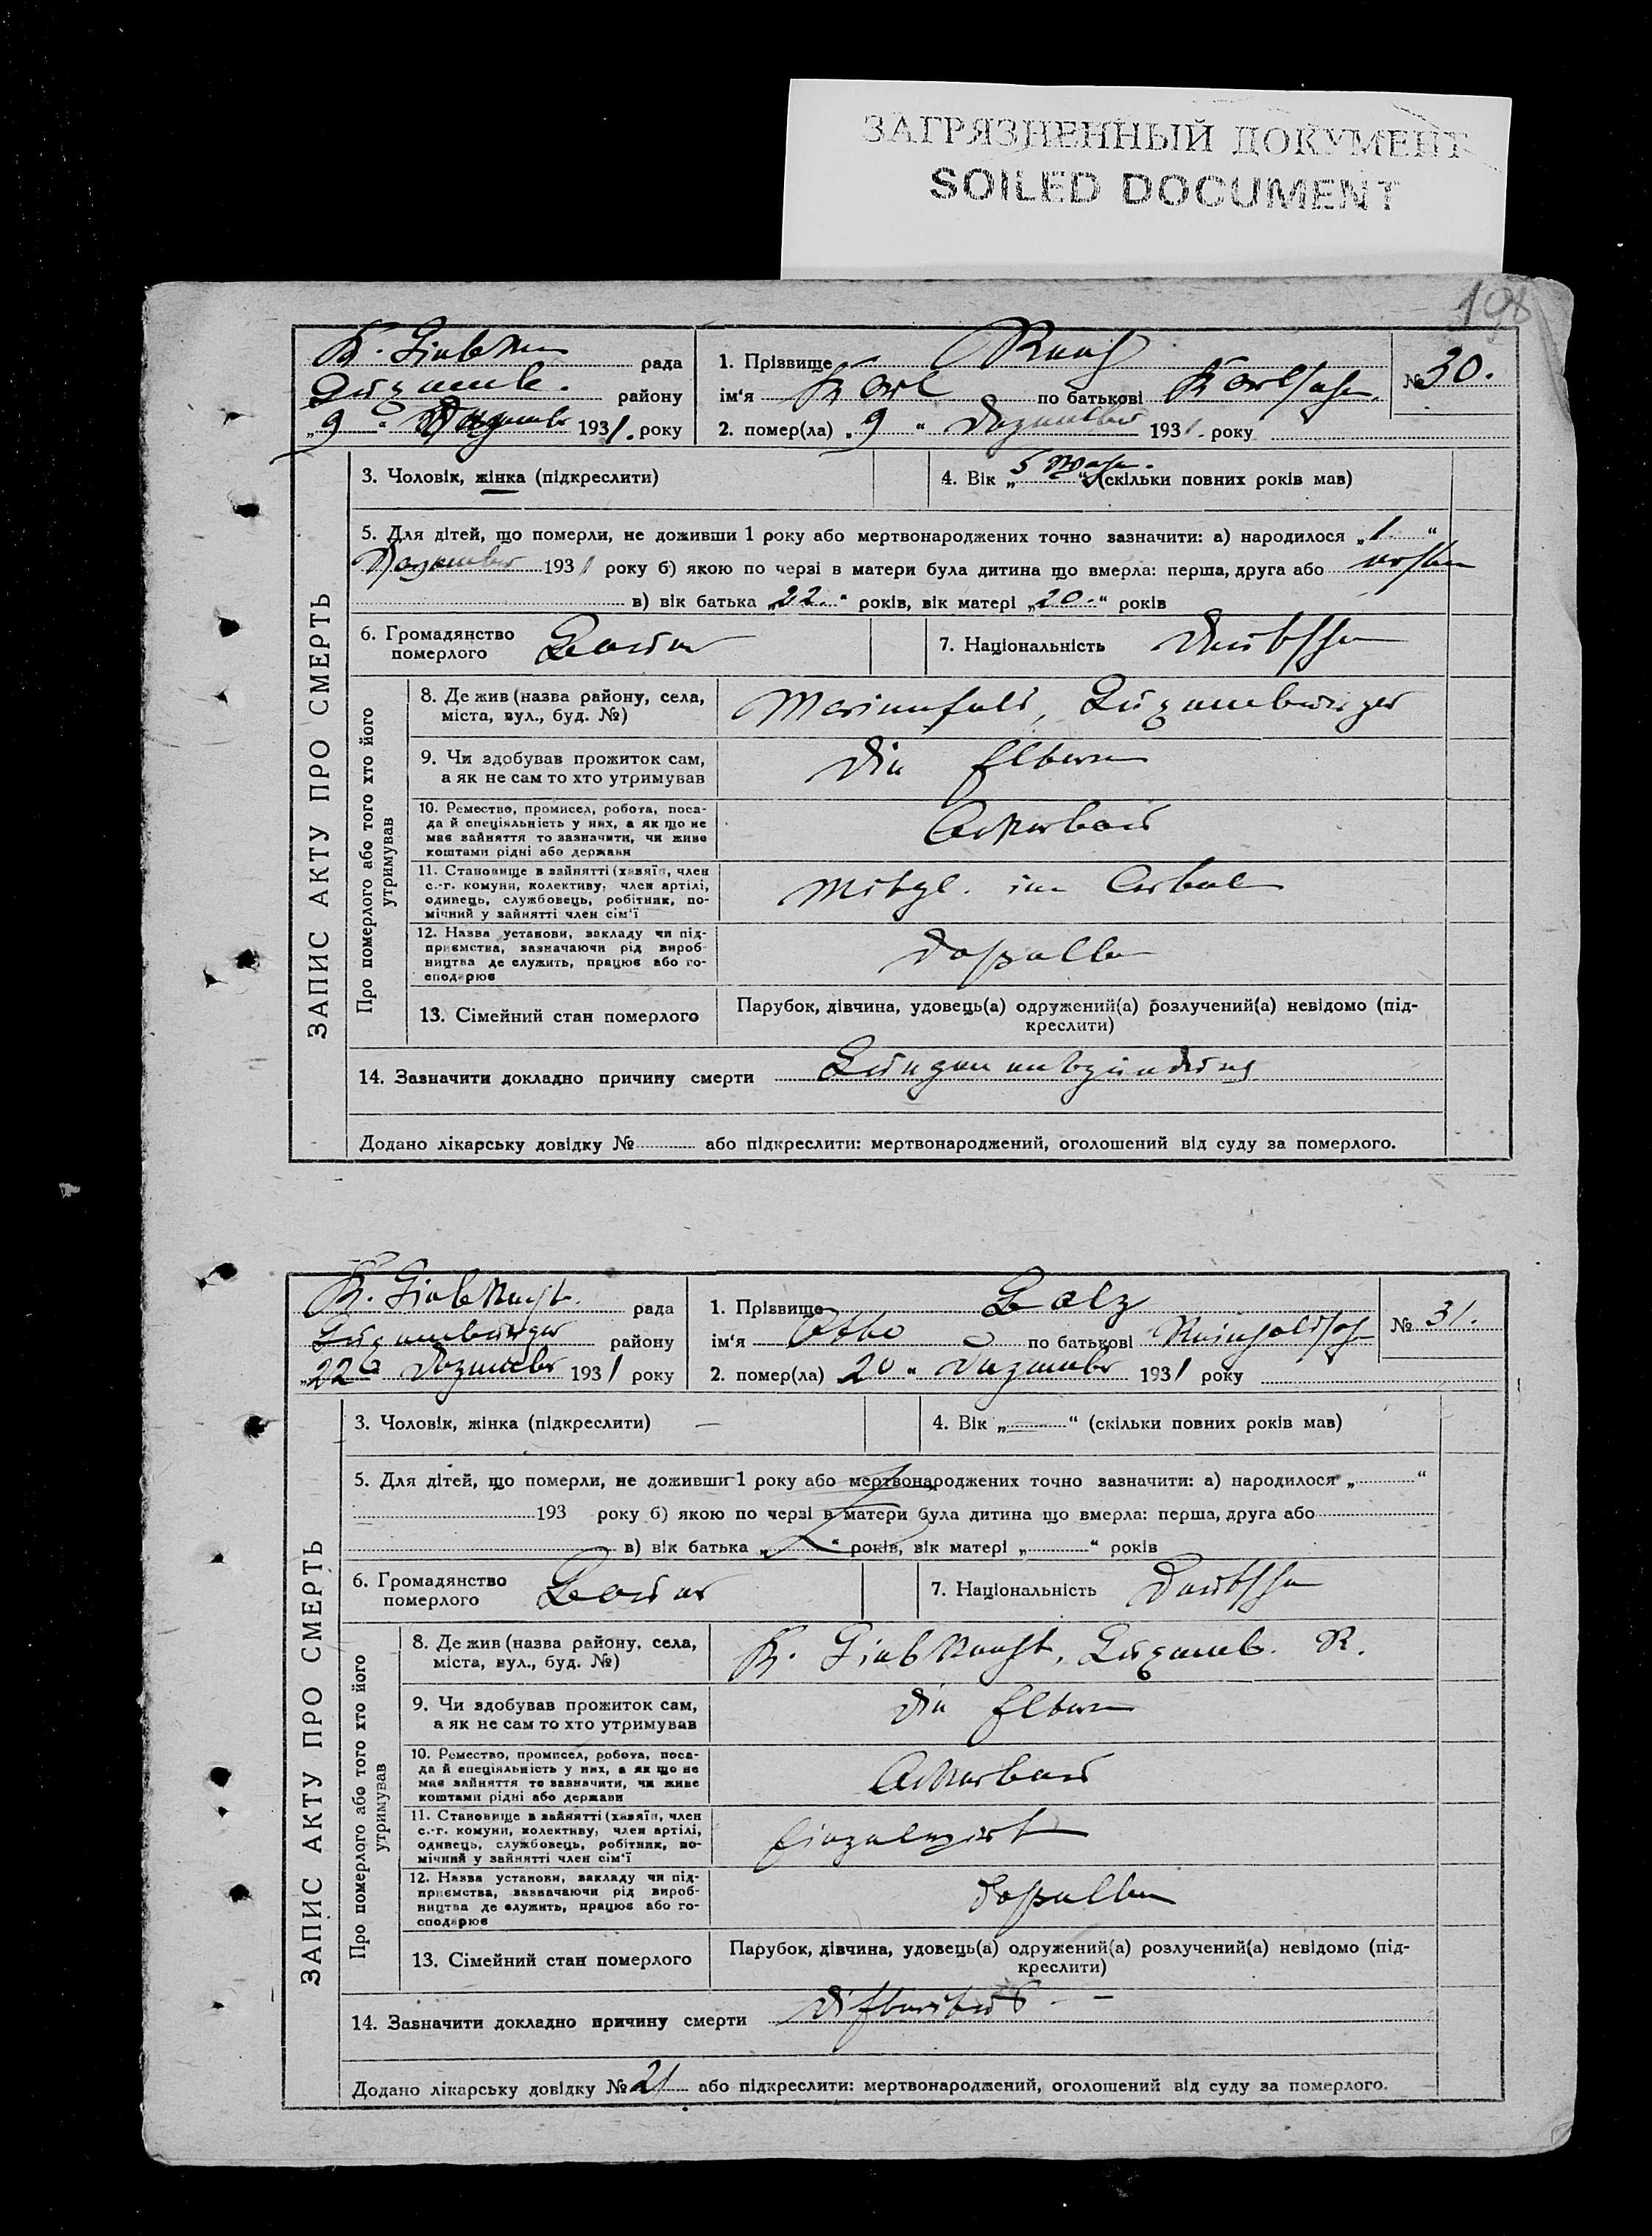 ЗАГРЯЗНЕННЫЙ ДОКУМЕНТ
SOILED DOCUMENT
198
K. рада
Luxemb. району
„9“ Dezember 1931. року
1. Прізвище
ім‘я Karl по батькові Karlsohn.
2. помер(ла) „9“ Dezember 1931. року
№ 30.
ЗАПИС АКТУ ПРО СМЕРТЬ
3. Чоловік, жінка (підкреслити)
4. Вік „5 “ (скільки повних років мав)
5. Для дітей, що померли, не доживши 1 року або мертвонароджених точно зазначити: а) народилося „1.“
Dezember 1931 року б) якою по черзі в матери була дитина що вмерла: перша, друга або ersten
в) вік батька „22.“ років, вік матері „20.“ років
6. Громадянство
померлого Bauer
7. Національність Deutscher
Про померлого або того хто його
утримував
8. Де жив (назва району, села,
міста, вул., буд. №) Marienfeld, Luxemburger
9. Чи здобував прожиток сам,
а як не сам то хто утримував die Eltern
10. Ремество, промисел, робота, поса-
да й спеціяльність у них, а як що не
має зайняття то зазначити, чи живе
коштами рідні або держави Ackerbau
11. Становище в зайнятті (хазяїн, член
с.-г. комуни, колективу, член артілі,
одинець, службовець, робітник, по-
мічний у зайнятті член сім‘ї Mitgl. im Artel
12. Назва установи, закладу чи під-
приємства, зазначаючи рід вироб-
ництва де служить, працює або го-
сподарює Dasselbe
13. Сімейний стан померлого
Парубок, дівчина, удовець(а) одружений(а) розлучений(а) невідомо (під-
креслити)
14. Зазначити докладно причину смерти Lungenentzündung
Додано лікарську довідку № або підкреслити: мертвонароджений, оголошений від суду за померлого.
K. Liebknecht. рада
Luxemburger району
„22“ Dezember 1931 року
1. Прізвище Bolz
ім‘я Otto по батькові Reinholdsohn
2. помер(ла) 20 “ Dezember 1931 року
№ 31.
ЗАПИС АКТУ ПРО СМЕРТЬ
3. Чоловік, жінка (підкреслити) —
4. Вік „—“ (скільки повних років мав)
5. Для дітей, що померли, не доживши 1 року або мертвонароджених точно зазначити: а) народилося „ “
193 року б) якою по черзі в матери була дитина що вмерла: перша, друга або
в) вік батька „ “ років, вік матері „ “ років
6. Громадянство
померлого Bauer
7. Національність Deutscher
Про померлого або того хто його
утримував
8. Де жив (назва району, села,
міста, вул., буд. №) K. Liebknecht, Luxemb. R.
9. Чи здобував прожиток сам,
а як не сам то хто утримував die Eltern
10. Ремество, промисел, робота, поса-
да й спеціяльність у них, а як що не
має зайняття то зазначити, чи живе
коштами рідні або держави Ackerbau
11. Становище в зайнятті (хазяїн, член
с.-г. комуни, колективу, член артілі,
одинець, службовець, робітник, по-
мічний у зайнятті член сім‘ї Einzelwirt
12. Назва установи, закладу чи під-
приємства, зазначаючи рід вироб-
ництва де служить, працює або го-
сподарює Dasselbe
13. Сімейний стан померлого
Парубок, дівчина, удовець(а) одружений(а) розлучений(а) невідомо (під-
креслити)
14. Зазначити докладно причину смерти Difteritus. —
Додано лікарську довідку № 21 або підкреслити: мертвонароджений, оголошений від суду за померлого.